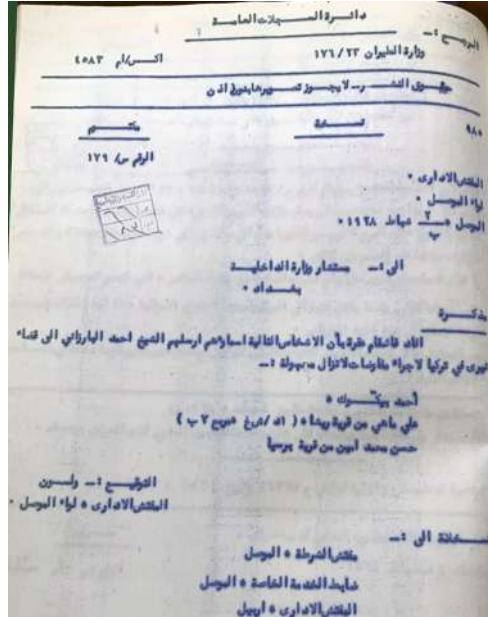 دائرة السجلات العامة
المرجع :ـ
وزارة الطيران ١٧٦/٢٣
اكس/ام ٤٥٨٣
حقوق النشـــر ـ لا يجوز تصويرها بدون اذن
٩٨٠
نسخة
مكتوم
الرقم س/ ١٧٩
المفتش الادارى ٠
لواء الموصل ٠
الموصل ٢/ب شباط ١٩٢٨ ٠
الى :ـ مستشار وزارة الداخلية
بغداد ٠
مذكرة
افاد قائمقام عقرة بأن الاشخاص التالية اسماؤهم ارسلهم الشيخ احمد البارزاني الى قضاء
في تركيا لاجراء مفاوضات لاتزال مجهولة :ـ
أحمد
علي ماهي من قرية ٠ ( ٢ ب )
حسن محمد امين من قرية
التوقيع :ـ ولسون
المفتش الادارى ٠ لواء الموصل ٠
نسخة الى :ـ
مفتش الشرطة ٠ الموصل
ضابط الخدمة الخاصة ٠ الموصل
المفتش الادارى ٠ اربيل